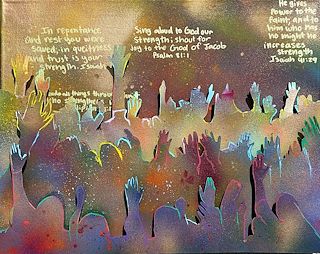 In repentance
and rest you were
saved; in quietness
and trust is your
strength. Isaiah
Sing aloud to God our
Strength; shout for
Joy to the God of Jacob
Psalm 81:1
He gives
Power to the
Faint, and to
him who has
no might he
increases
Strength
Isaiah 41:29
all things through
strengthens